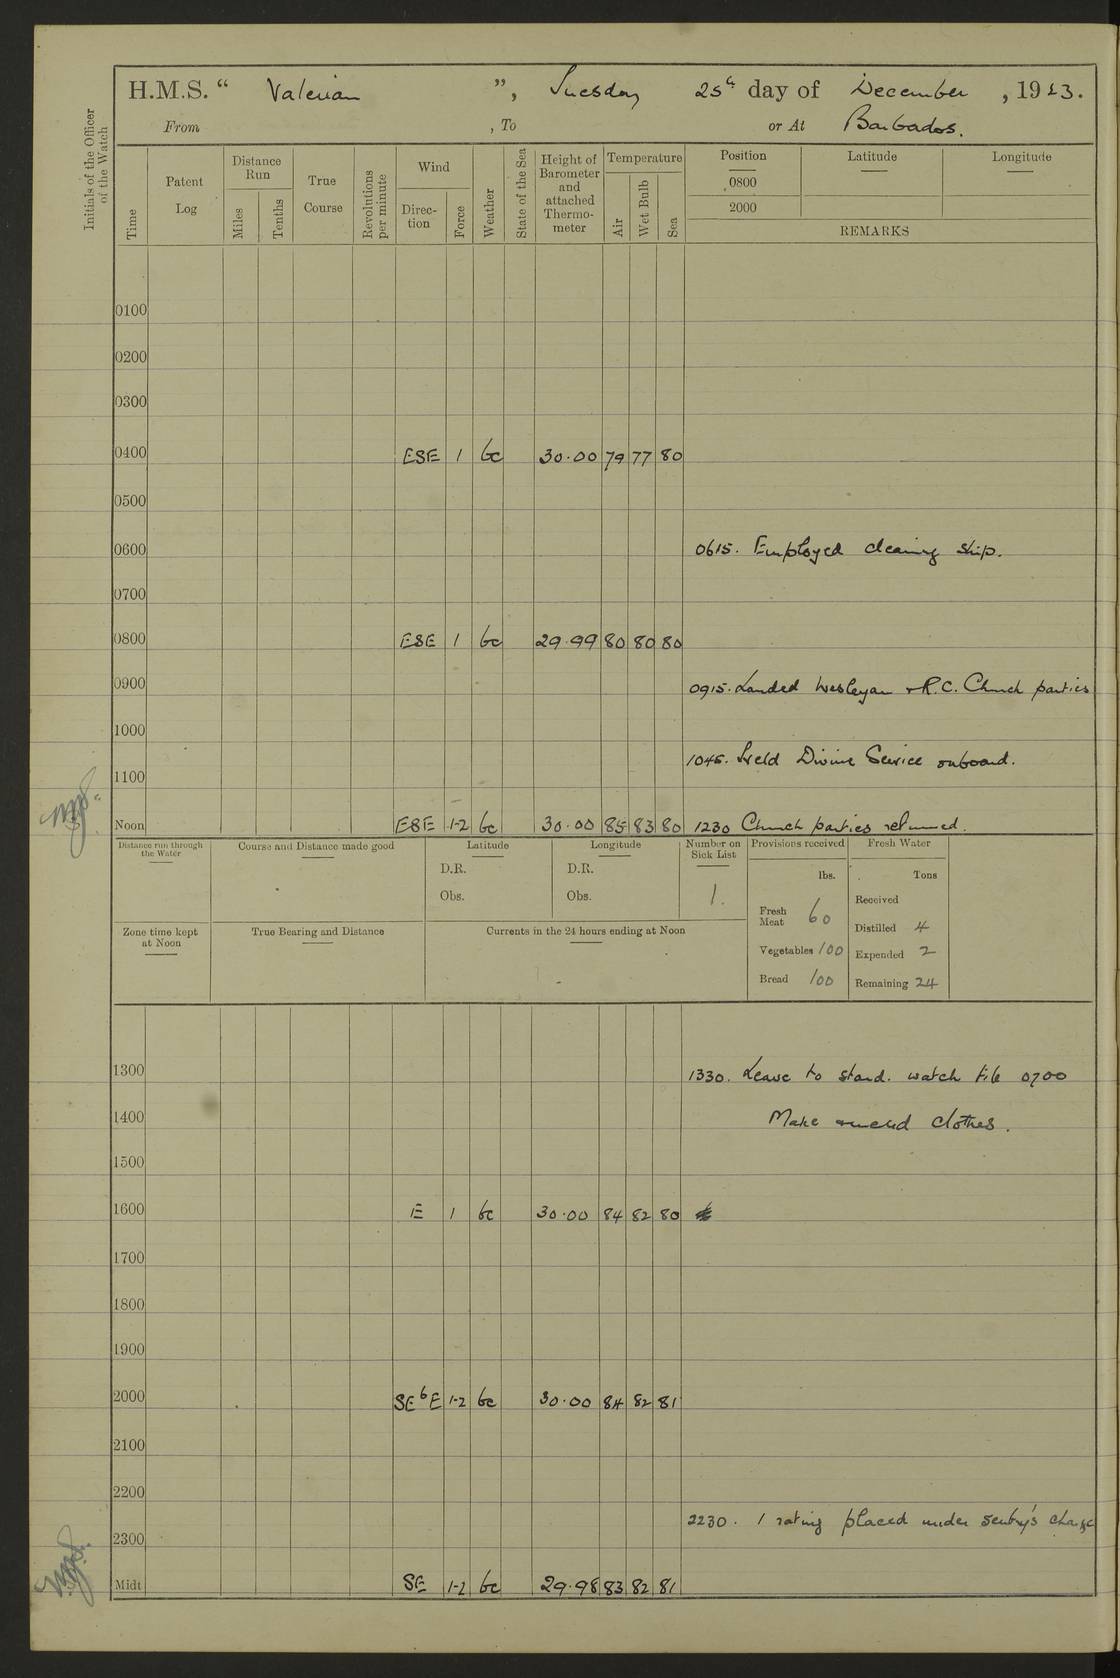 H.M.S. “ Valerian ”, Tuesday 25th day of December , 1923.
From , To or At Barbados.
Initials of the Officer of the Watch
Time
Patent Log
Distance Run
Miles
Tenths
True Course
Revolutions per minute
Wind
Direc-tion
Force
Weather
State of the Sea
Height of Barometer and attached Thermo-meter
Temperature
Air
Wet Bulb
Sea
Position
0800
2000
Latitude
Longitude
REMARKS
0100
0200
0300
0400 ESE 1 bc 30.00 79 77 80
0500
0600 0615. Employed cleaning ship.
0700
0800 ESE 1 bc 29.99 80 80 80
0900 0915. Landed Wesleyan & R.C. Church parties
1000
1045. Held Divine Service onboard.
1100
Noon ESE 1-2 bc 30.00 85 83 80 1230 Church parties returned.
Distance run through the Water
Course and Distance made good
Latitude
D.R.
Obs.
Longitude
D.R.
Obs.
Number on Sick List
1.
Provisions received
lbs.
Fresh Meat 60
Vegetables 100
Bread 100
Fresh Water
Tons
Received
Distilled 4
Expended 2
Remaining 24
Zone time kept at Noon
True Bearing and Distance
Currents in the 24 hours ending at Noon
1300 1330. Leave to stand. watch till 0700
1400 Make & mend clothes.
1500
1600 E 1 bc 30.00 84 82 80
1700
1800
1900
2000 SEbE 1-2 bc 30.00 84 82 81
2100
2200
2230. 1 rating placed under sentry's charge
2300
Midt SE 1-2 bc 29.98 83 82 81